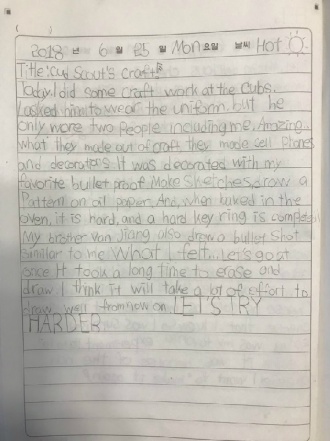 2018 년 6 월 25 일 Mon 요일 날씨 Hot
Title: Cup Scout's craft
Today I did some craft work at the cubs.
I asked him to wear the uniform, but he
only wore two people including me. Amazing..
what they made out of craft they made cell phones
and decorators. It was decorated with my
favorite bullet proof. Make sketches, draw a
Pattern on oil paper. And, when baked in the
oven, it is hard, and a hard key ring is complete.
My brother Van Jiang also drew a bullet shot
similar to me What I felt... Let's go at
once It took a long time to erase and
draw. I think it will take a lot of effort to
draw well from now on. LET'S TRY
HARDER